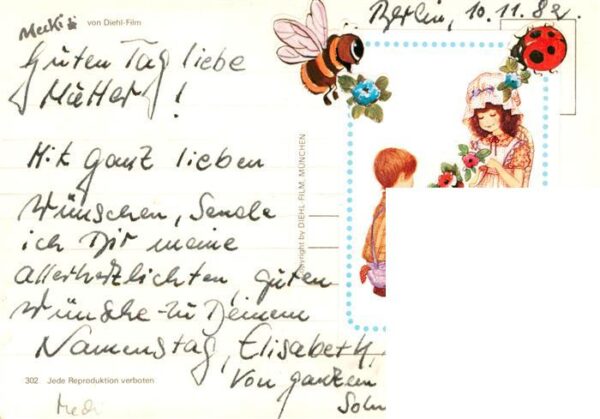 Mecki von Diehl-Film
Berlin, 10.11.82.
Guten Tag liebe
Mutter!
Mit ganz lieben
Wünschen, Sende
ich Dir meine
allerherzlichten, guten
Wünsche zu Deinem
Namenstag, Elisabeth,
Von ganzem
Sohn
copyright by DIEHL-FILM, MÜNCHEN
302 Jede Reproduktion verboten